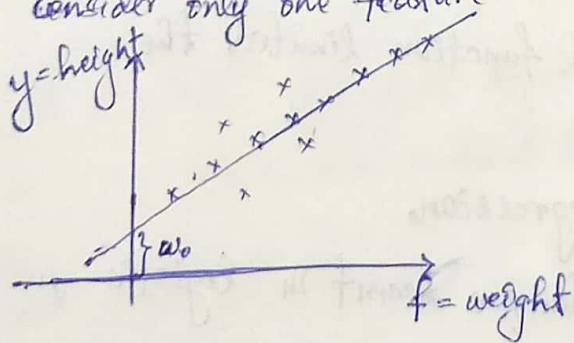 consider only one feature
y=height
w₀
f = weight